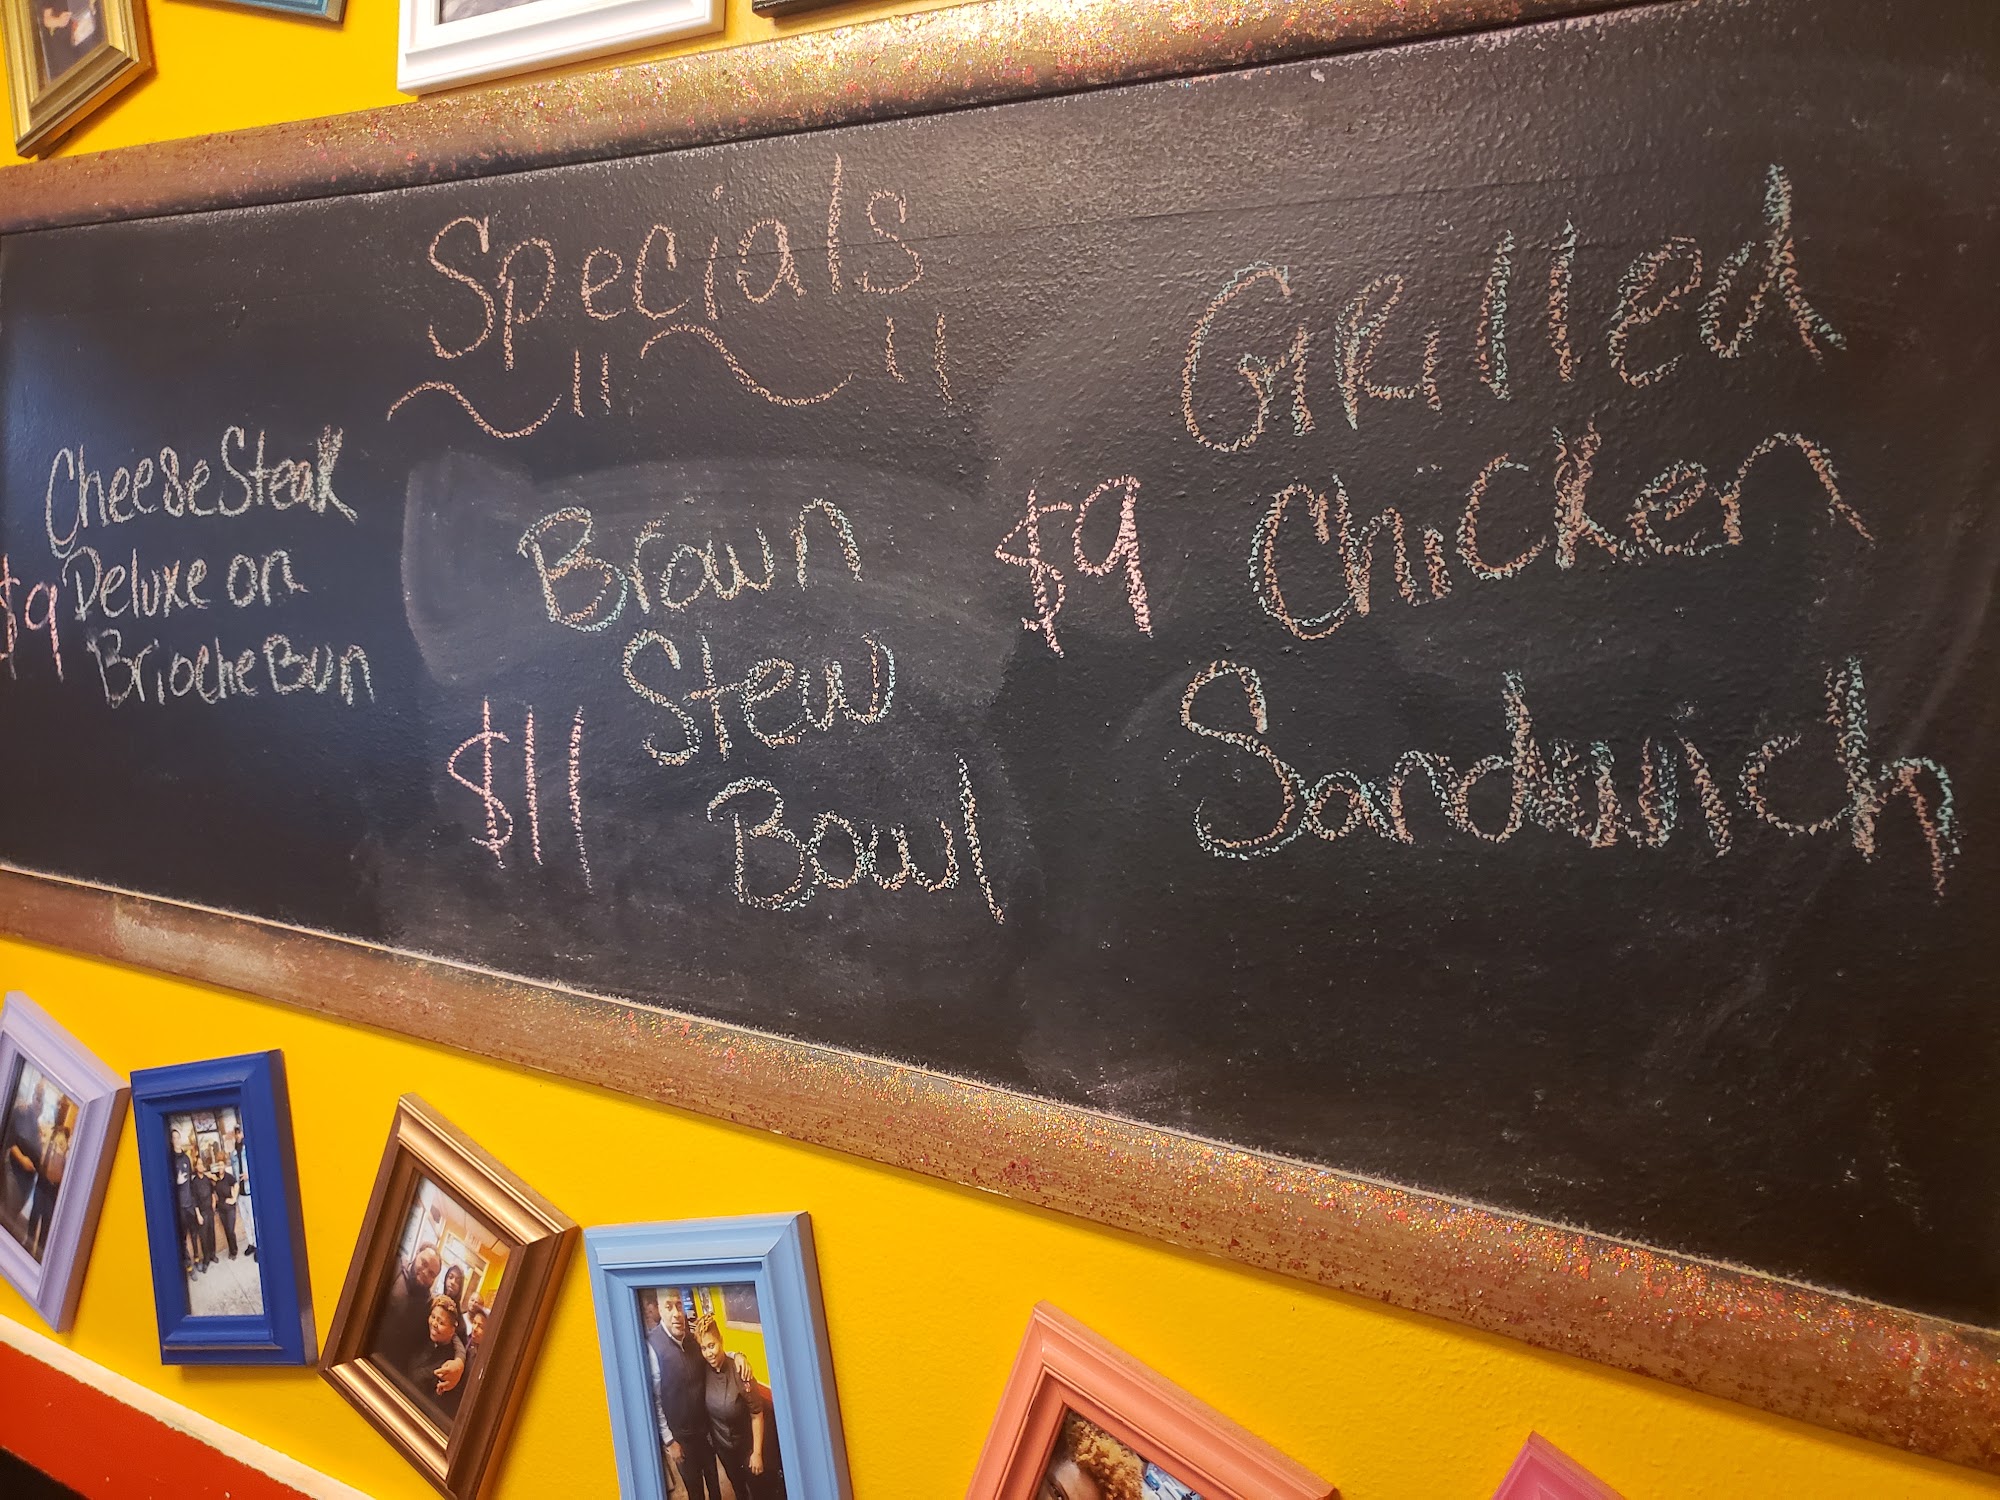 Specials
CheeseSteak
$9 Deluxe on
Brioche Bun
Brown
Stew
$11 Bowl
Grilled
$9 Chicken
Sandwich